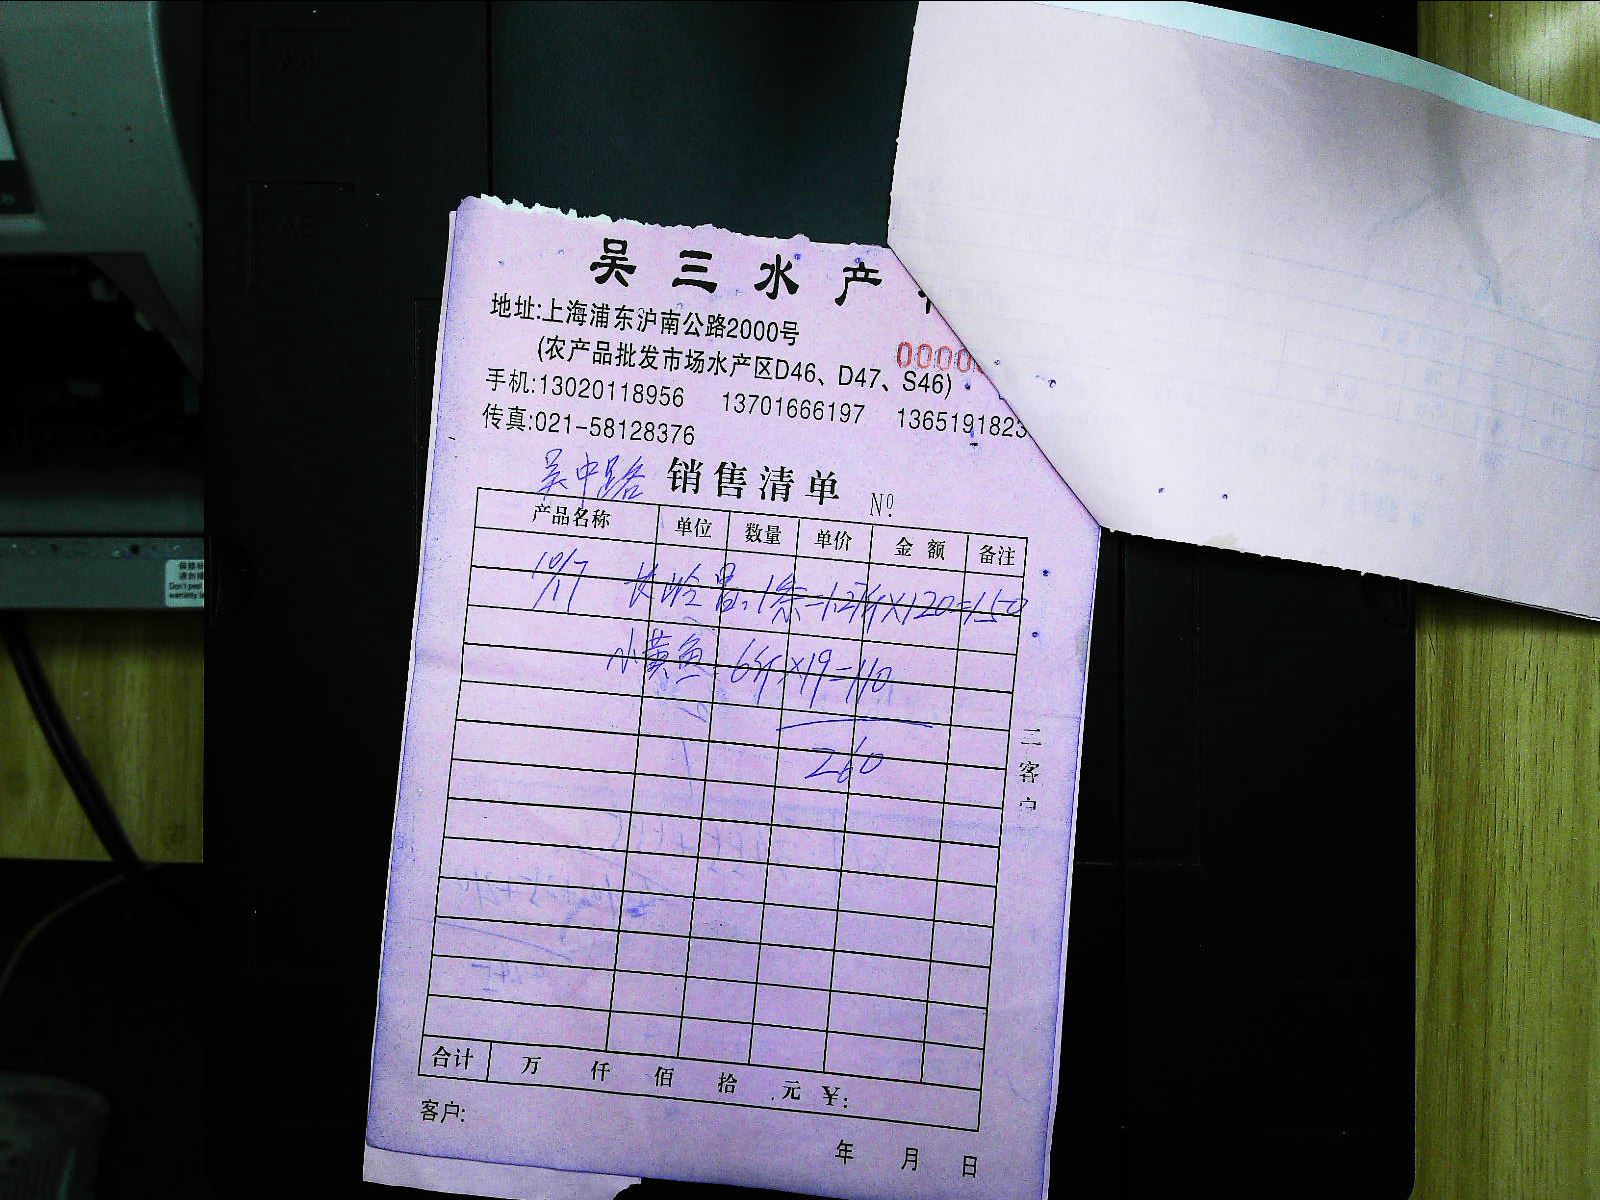 吴三水产
地址:上海浦东沪南公路2000号
0000
(农产品批发市场水产区D46、D47、S46)
手机:13020118956 13701666197 1365191823
传真:021-58128376
吴中路 销售清单 Nº
产品名称 单位 数量 单价 金额 备注
10/17 长 1条=1.27斤×120=150
小黄鱼 6斤×19=110
260
三客户
合计 万 仟 佰 拾 元 ¥:
客户:
年 月 日